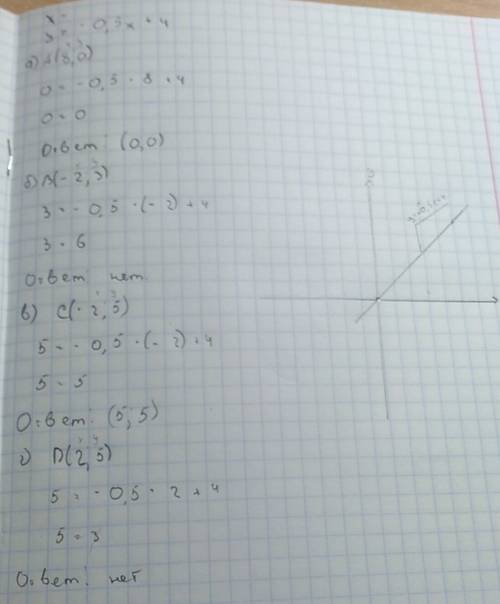 x =
y = - 0,5x + 4
а) A(8,0)
0 = - 0,5 · 8 + 4
0 = 0
Ответ: (0,0)
б) B(- 2, 3)
3 = - 0,5 · (- 2) + 4
3 = 6
Ответ нет.
в) C(- 2, 5)
5 = - 0,5 · (- 2) + 4
5 = 5
Ответ: (5; 5)
г) D(2, 5)
5 = - 0,5 · 2 + 4
5 = 3
Ответ: нет